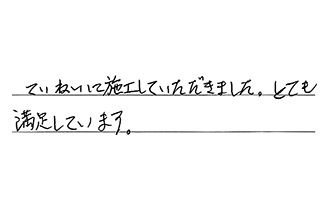 ていねいに施工していただきました。とても
満足しています。